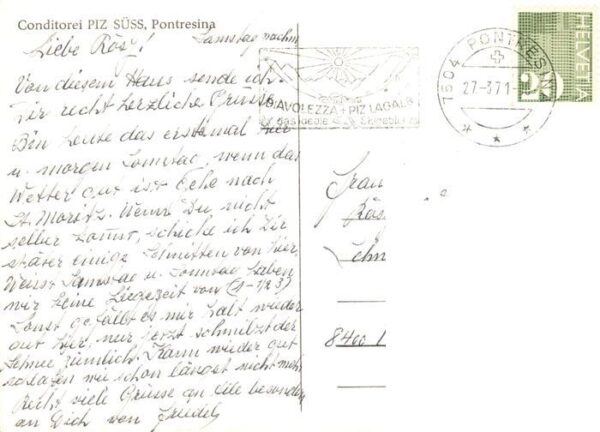 Conditorei PIZ SÜSS, Pontresina
Samstag nachm
Liebe Rösy!
Von diesem Haus sende ich
Dir recht herzliche Grüsse
Bin heute das erstemal hier
u. morgen Sonntag, wenn das
Wetter gut ist gehe nach
St. Moritz. Wenn Du nicht
selber kommst, schicke ich Dir
später einige Schnitten von hier.
Weisst Samstag u. Sonntag haben
wir keine Liegezeit von (1-1/2 3)
Sonst gefällt es mir halt wieder
gut hier, nur jetzt schmilzt der
Schnee ziemlich. Kann wieder gut
schlafen wie schon längst nicht mehr
Recht viele Grüsse an alle besonders
an Dich von
DIAVOLEZZA + PIZ LAGALB
das ideale
7504 PONTRESINA
27-3 71
HELVETIA
20
Frau
Rös
Lehn
8400